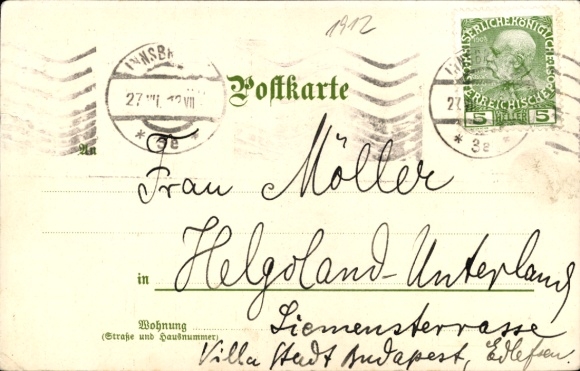 1912
INNSBR
27.VII.12 VII
* 3e
KAISERLICHE KÖNIGLICHE
1908
ÖSTERREICHISCHE
5 HELLER 5
INNSBR
27
* 3e *
Postkarte
An
Frau Möller
in Helgoland-Unterland
Siemensterrasse
Wohnung
(Straße und Hausnummer)
Villa Stadt Budapest, Edlefsen.